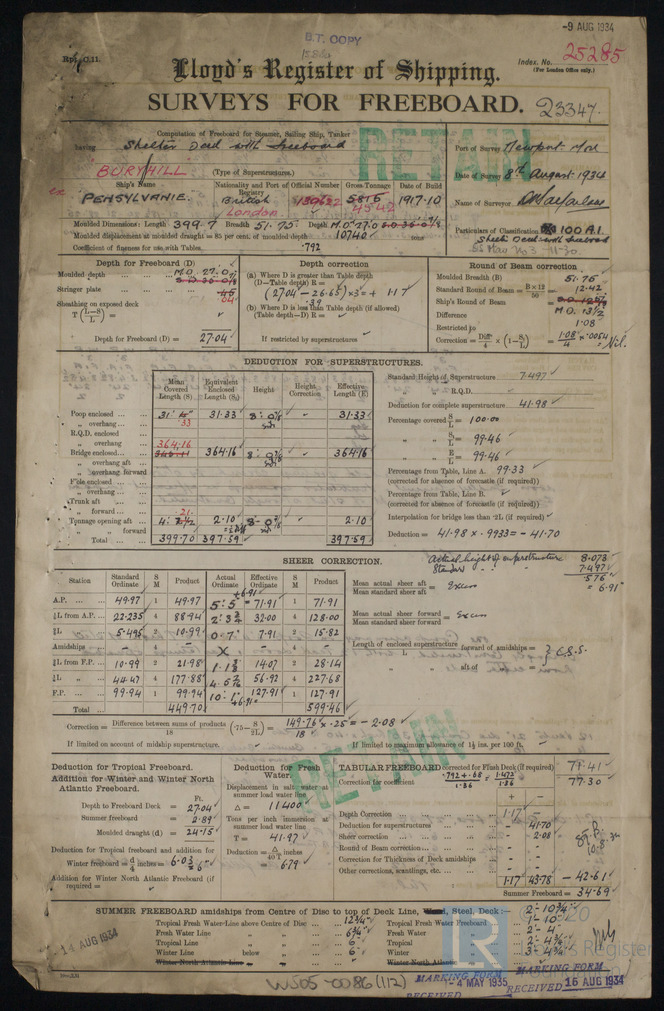 -9 AUG 1934
B.T. COPY
Index. No. 25285
(For London Office only.)
Lloyd's Register of Shipping.
SURVEYS FOR FREEBOARD. 23347.
Computation of Freeboard for Steamer, Sailing Ship, Tanker
having Shelter Deck with freeboard
(Type of Superstructures.)
RETAIN
Port of Survey Newport. Mon
Date of Survey 8th August 1934
Name of Surveyor
Particulars of Classification 100 A.1.
"BURYHILL"
Ship's Name
PENSYLVANIE.
Nationality and Port of Registry
British
London.
Official Number
Gross Tonnage
5815
4542
Date of Build
1917.10
Moulded Dimensions: Length 399.7 Breadth 51.75 Depth M.D. 27.0
Moulded displacement at moulded draught = 85 per cent. of moulded depth 10740 tons
Coefficient of fineness for use with Tables. .792
Depth for Freeboard (D)
Moulded depth ... M.D. 27.0
Stringer plate ... .04
Sheathing on exposed deck
T (L-S/L) =
Depth for Freeboard (D) = 27.04
Depth correction
(a) Where D is greater than Table depth
(D—Table depth) R =
(27.04 - 26.65) × 3 = + 1.17
.39
(b) Where D is less than Table depth (if allowed)
(Table depth—D) R =
If restricted by superstructures
Round of Beam correction
Moulded Breadth (B) 51.75
Standard Round of Beam = B×12/50 = 12.42
Ship's Round of Beam = M.D. 13½
Difference 1.08
Restricted to
Correction = Diff/4 × (1-S/L) = 1.08/4 × .0054 = Nil.
DEDUCTION FOR SUPERSTRUCTURES.
Mean Covered Length (S) Equivalent Enclosed Length (S₁) Height Height Correction Effective Length (E)
Poop enclosed ... 31.33 31.33 31.33
„ overhang ...
R.Q.D. enclosed
„ overhang
Bridge enclosed ... 364.16 364.16 364.16
„ overhang aft ...
„ overhang forward
F'cle enclosed ...
„ overhang ...
Trunk aft ...
„ forward ...
Tonnage opening aft 4.21 2.10 2.10
„ „ forward
Total ... 399.70 397.59 397.59
Standard Height of Superstructure 7.497
„ „ R.Q.D.
Deduction for complete superstructure 41.98
Percentage covered S/L = 100.00
„ „ S₁/L = 99.46
„ „ E/L = 99.46
Percentage from Table, Line A. 99.33
(corrected for absence of forecastle (if required))
Percentage from Table, Line B.
(corrected for absence of forecastle (if required))
Interpolation for bridges less than ·2L (if required)
Deduction = 41.98 × .9933 = - 41.70
SHEER CORRECTION.
Actual height of superstructure 8.073
Standard „ „ 7.497
.576
= 6.91"
Station Standard Ordinate S M Product Actual Ordinate Effective Ordinate S M Product
A.P. ... 49.97 1 49.97 5'.5 71.91 1 71.91
⅙L from A.P. ... 22.235 4 88.94 32.00 4 128.00
⅓L „ 5.495 2 10.99 0.7 7.91 2 15.82
Amidships ...
⅓L from F.P. ... 10.99 2 21.98 14.07 2 28.14
⅙L „ 44.47 4 177.88 56.92 4 227.68
F.P. ... 99.94 1 99.94 127.91 1 127.91
Total ... 449.70 599.46
Mean actual sheer aft / Mean standard sheer aft = Excess
Mean actual sheer forward / Mean standard sheer forward = Excess
Length of enclosed superstructure forward of amidships = } C.S.S.
L aft of „ =
Correction = Difference between sums of products/18 (·75 - S/2L) = 149.76/18 × .25 = - 2.08
If limited on account of midship superstructure. If limited to maximum allowance of 1½ ins. per 100 ft.
RETAIN
Deduction for Tropical Freeboard.
Addition for Winter and Winter North Atlantic Freeboard.
Ft.
Depth to Freeboard Deck = 27.04
Summer freeboard = 2.89
Moulded draught (d) = 24.15
Deduction for Tropical freeboard and addition for
Winter freeboard = d/4 inches = 6.03 = 6"
Addition for Winter North Atlantic Freeboard (if required) =
Deduction for Fresh Water.
Displacement in salt water at summer load water line
Δ = 11400
Tons per inch immersion at summer load water line
T = 41.97
Deduction = Δ/40 T inches
= 6.79
TABULAR FREEBOARD corrected for Flush Deck (if required) 77.41
Correction for coefficient .792+.68/1.36 = 1.472/1.36 77.30
+ -
Depth Correction ... 1.17 -
Deduction for superstructures ... - 41.70
Sheer correction ... - 2.08
Round of Beam correction ... - -
Correction for Thickness of Deck amidships - -
Other corrections, scantlings, etc. ... - -
1.17 43.78 - 42.61
Summer Freeboard = 34.69
SUMMER FREEBOARD amidships from Centre of Disc to top of Deck Line, Wood, Steel, Deck:— 2'- 10¾"
Tropical Fresh Water Line above Centre of Disc ... 12¾" Tropical Fresh Water Freeboard 1'- 10"
Fresh Water Line „ „ ... 6¾" Fresh Water „ 2'- 4"
Tropical Line „ „ ... 6" Tropical „ 2'- 4¾"
Winter Line below „ ... 6" Winter „ 3'- 4¾"
Winter North Atlantic Line „ Winter North Atlantic „
14 AUG 1934
W505-0086 (1/2)
MARKING FORM
RECEIVED - 4 MAY 1935
MARKING FORM
RECEIVED 16 AUG 1934